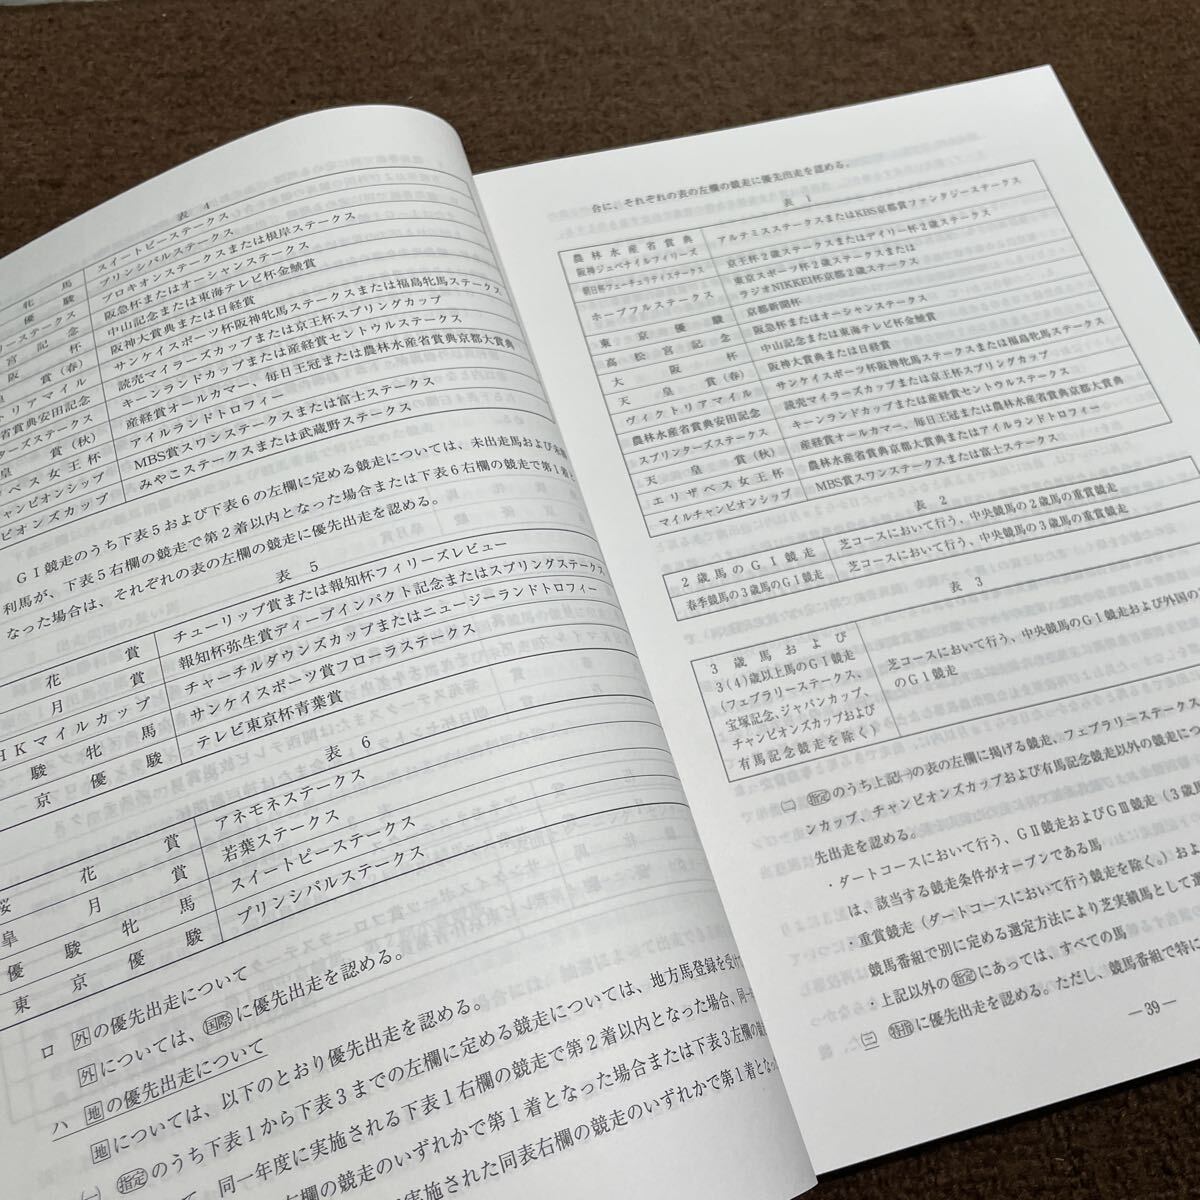 表 4
牝 馬 スイートピーステークス
優 駿 プリンシパルステークス
ーステークス プロキオンステークスまたは根岸ステークス
宮 記 念 阪急杯またはオーシャンステークス
阪 杯 中山記念または東海テレビ杯金鯱賞
皇 賞(春) 阪神大賞典または日経賞
トリアマイル サンケイスポーツ杯阪神牝馬ステークスまたは福島牝馬ステークス
省賞典安田記念 読売マイラーズカップまたは京王杯スプリングカップ
ターズステークス キーンランドカップまたは産経賞セントウルステークス
皇 賞(秋) 産経賞オールカマー、毎日王冠または農林水産省賞典京都大賞典
ザベス女王杯 アイルランドトロフィー
チャンピオンシップ MBS賞スワンステークスまたは富士ステークス
ピオンズカップ みやこステークスまたは武蔵野ステークス
GⅠ競走のうち下表5および下表6の左欄に定める競走については、未出走馬および未勝
利馬が、下表5右欄の競走で第2着以内となった場合または下表6右欄の競走で第1着と
なった場合は、それぞれの表の左欄の競走に優先出走を認める。
表 5
花 賞 チューリップ賞または報知杯フィリーズレビュー
月 賞 報知杯弥生賞ディープインパクト記念またはスプリングステークス
HKマイルカップ チャーチルダウンズカップまたはニュージーランドトロフィー
駿 牝 馬 サンケイスポーツ賞フローラステークス
京 優 駿 テレビ東京杯青葉賞
表 6
桜 花 賞 アネモネステークス
皐 月 賞 若葉ステークス
優 駿 牝 馬 スイートピーステークス
東 京 優 駿 プリンシパルステークス
ロ 外の優先出走について
外については、国際に優先出走を認める。
ハ 地の優先出走について
地については、以下のとおり優先出走を認める。
(一) 指定のうち下表1から下表3までの左欄に定める競走については、地方馬登録を受け
同一年度に実施される下表1右欄の競走で第2着以内となった場合、同一
左欄の競走のいずれかで第1着となった場合または下表3左欄の
実施された同表右欄の競走のいずれかで第1着とな
合に、それぞれの表の左欄の競走に優先出走を認める。
表 1
農林水産省賞典 阪神ジュベナイルフィリーズ アルテミスステークスまたはKBS京都賞ファンタジーステークス
朝日杯フューチュリティステークス 京王杯2歳ステークスまたはデイリー杯2歳ステークス
ホープフルステークス 東京スポーツ杯2歳ステークスまたは
ラジオNIKKEI杯京都2歳ステークス
東 京 優 駿 京都新聞杯
高 松 宮 記 念 阪急杯またはオーシャンステークス
大 阪 杯 中山記念または東海テレビ杯金鯱賞
天 皇 賞(春) 阪神大賞典または日経賞
ヴィクトリアマイル サンケイスポーツ杯阪神牝馬ステークスまたは福島牝馬ステークス
農林水産省賞典安田記念 読売マイラーズカップまたは京王杯スプリングカップ
スプリンターズステークス キーンランドカップまたは産経賞セントウルステークス
天 皇 賞(秋) 産経賞オールカマー、毎日王冠または農林水産省賞典京都大賞典
エリザベス女王杯 農林水産省賞典京都大賞典またはアイルランドトロフィー
マイルチャンピオンシップ MBS賞スワンステークスまたは富士ステークス
表 2
2歳馬のGⅠ競走 芝コースにおいて行う、中央競馬の2歳馬の重賞競走
春季競馬の3歳馬のGⅠ競走 芝コースにおいて行う、中央競馬の3歳馬の重賞競走
表 3
3歳馬および
3(4)歳以上馬のGⅠ競走
(フェブラリーステークス、
宝塚記念、ジャパンカップ、
チャンピオンズカップおよび
有馬記念競走を除く)
芝コースにおいて行う、中央競馬のGⅠ競走および外国の
のGⅠ競走
(二) 指定のうち上記(一)の表の左欄に掲げる競走、フェブラリーステークス
ンカップ、チャンピオンズカップおよび有馬記念競走以外の競走につ
先出走を認める。
・ダートコースにおいて行う、GⅡ競走およびGⅢ競走(3歳馬
は、該当する競走条件がオープンである馬
・重賞競走(ダートコースにおいて行う競走を除く。)およ
競馬番組で別に定める選定方法により芝実績馬として選
・上記以外の指定にあっては、すべての馬
(三) 特指に優先出走を認める。ただし、競馬番組で特に
—39—